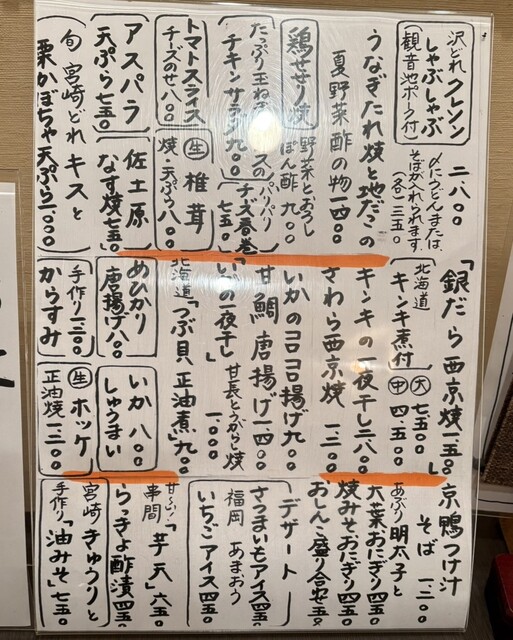 沢どれクレソン
しゃぶしゃぶ
(観音池ポーク付)
二八〇〇
〆にうどんまたは、
そばが入れられます。
(各)三五〇
うなぎたれ焼と地だこの
夏野菜酢の物 一四〇〇
鶏せせり焼
野菜とおろし
ぽん酢 九〇〇
たっぷり玉ねぎ
スの
チキンサラダ 九〇〇
パリパリ
チーズ春巻
七五〇
トマトスライス
チーズのせ 八〇〇
生 椎茸
焼・天ぷら 八〇〇
アスパラ
天ぷら 七五〇
佐土原
なす焼 七五〇
旬 宮崎どれ キスと
栗かぼちゃ天ぷら 一、〇〇〇
「銀だら西京焼 一五〇〇」
北海道
キンキ煮付
大 七、五〇〇
中 四、五〇〇
キンキの一夜干し 二八〇〇
さわら西京焼 一、二〇〇
いかのコロコロ揚げ 九〇〇
甘鯛 唐揚げ 一四〇〇
いかの一夜干し
甘長とうがらし焼
一、〇〇〇
北海道「つぶ貝 正油煮」九〇〇
めひかり
唐揚げ 八〇〇
いか 八〇〇
しゅうまい
手作り 一二〇〇
からすみ
生 ホッケ
正油焼 一、二〇〇
京鴨つけ汁
そば 一、二〇〇
あぶり明太子と
大葉おにぎり 四五〇
焼みそおにぎり 四五〇
おしんこ盛り合せ 五五〇
デザート
さつまいもアイス 四五〇
福岡 あまおう
いちごアイス 四五〇
甘〜い!
串間「芋天」六五〇
らっきょ酢漬 四五〇
宮崎 きゅうりと
手作り「油みそ」七五〇